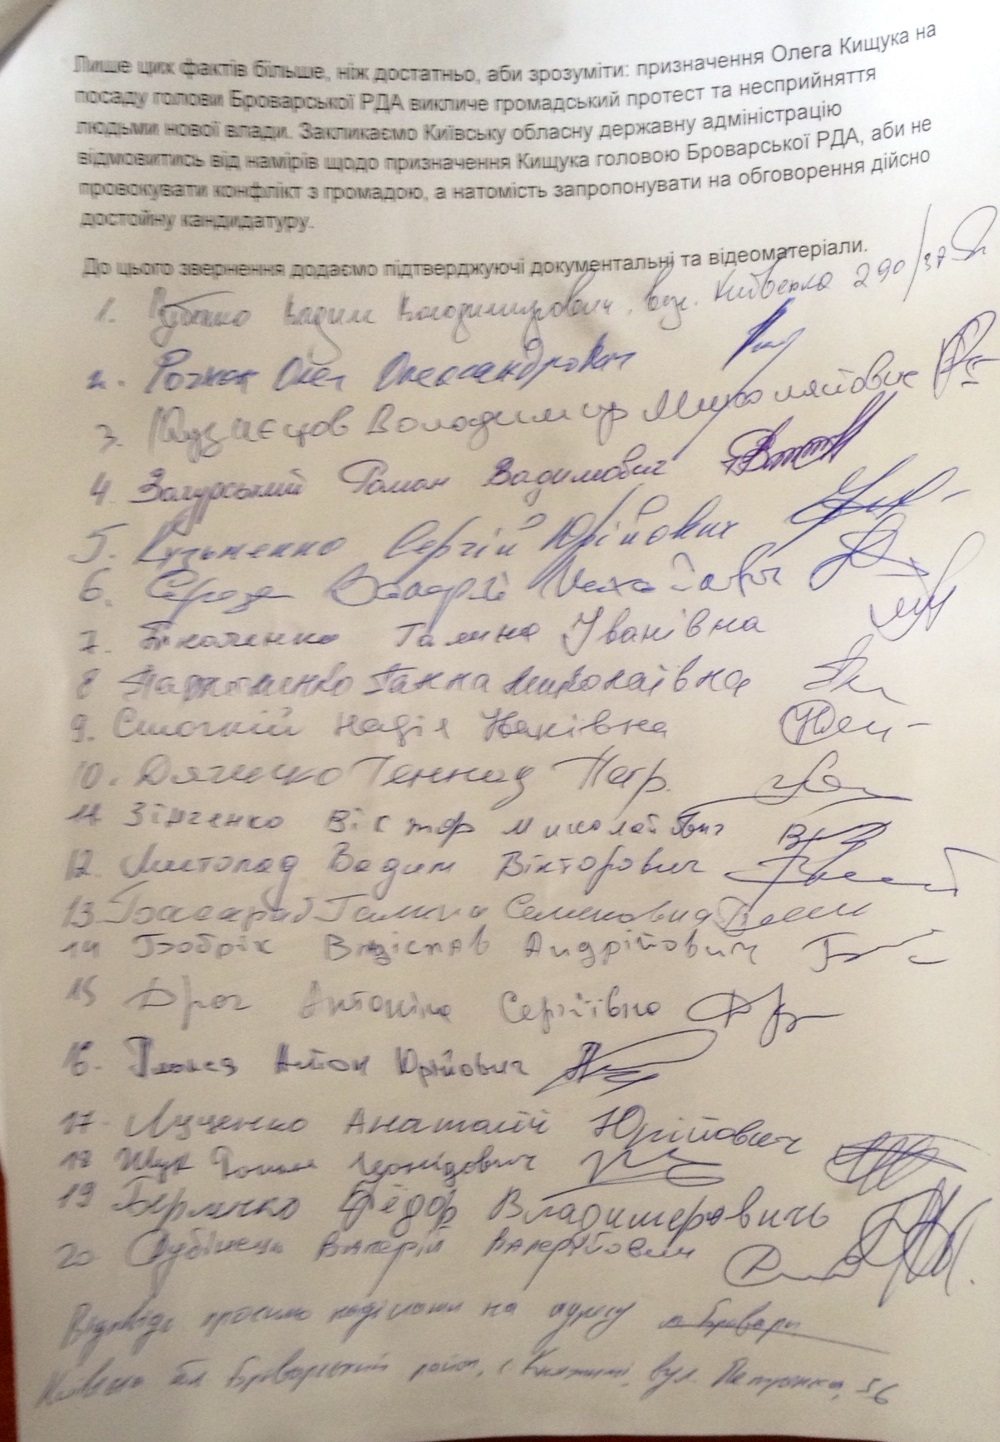 Лише цих фактів більше, ніж достатньо, аби зрозуміти: призначення Олега Кищука на
посаду голови Броварської РДА викличе громадський протест та несприйняття
людьми нової влади. Закликаємо Київську обласну державну адміністрацію
відмовитись від намірів щодо призначення Кищука головою Броварської РДА, аби не
провокувати конфлікт з громадою, а натомість запропонувати на обговорення дійсно
достойну кандидатуру.
До цього звернення додаємо підтверджуючі документальні та відеоматеріали.
1. Вадим Володимирович, вул. Київська 290/37
2. Олег Олександрович
3. Володимир Миколайович
4. Загурський Роман Вадимович
5. Кузьменко Сергій Юрійович
6. Валерій Михайлович
7. Ткаченко Галина Іванівна
8 Ганна Миколаївна
9. Надія Іванівна
10. Дяченко Геннад Петр.
11. Зінченко Віктор Миколайович
12. Листопад Вадим Вікторович
13. Галина Семеновна
14 Бобрік Владіслав Андрійович
15 Дрог Антоніна Сергіївна
16. Антон Юрійович
17. Луценко Анатолій Юрійович
18 Жук Роман Леонідович
19 Фёдор Владимерович
20 Валерій Валерійович
Відповідь просимо надіслати на адресу м. Бровари
Київська обл Броварський район, с. Княжичі, вул. 56